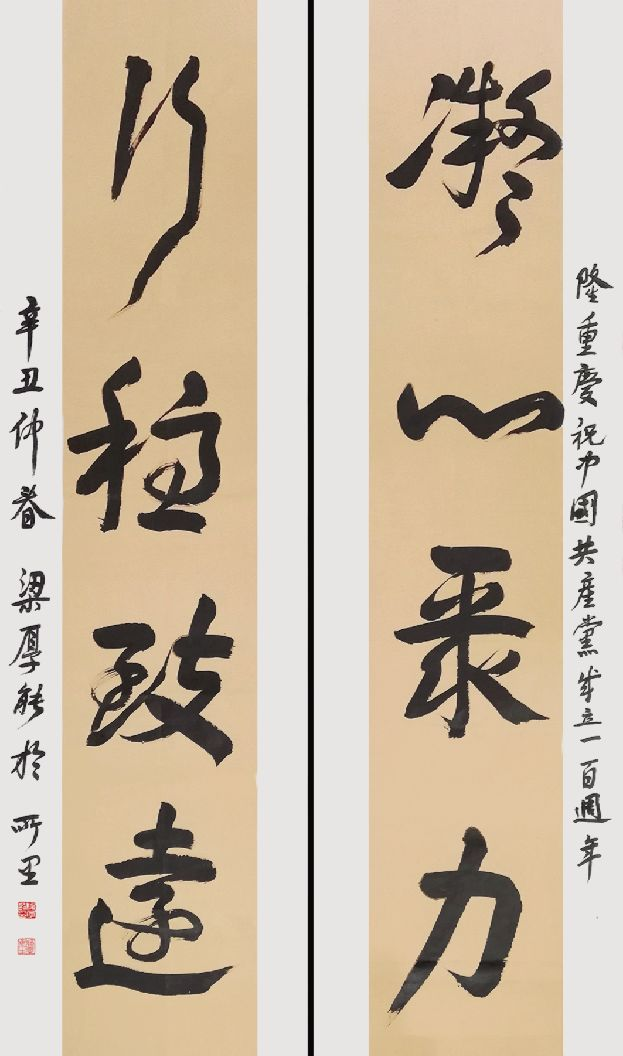 隆重慶祝中國共產黨成立一百週年
凝心聚力
行穩致遠
辛丑仲春 梁厚能於